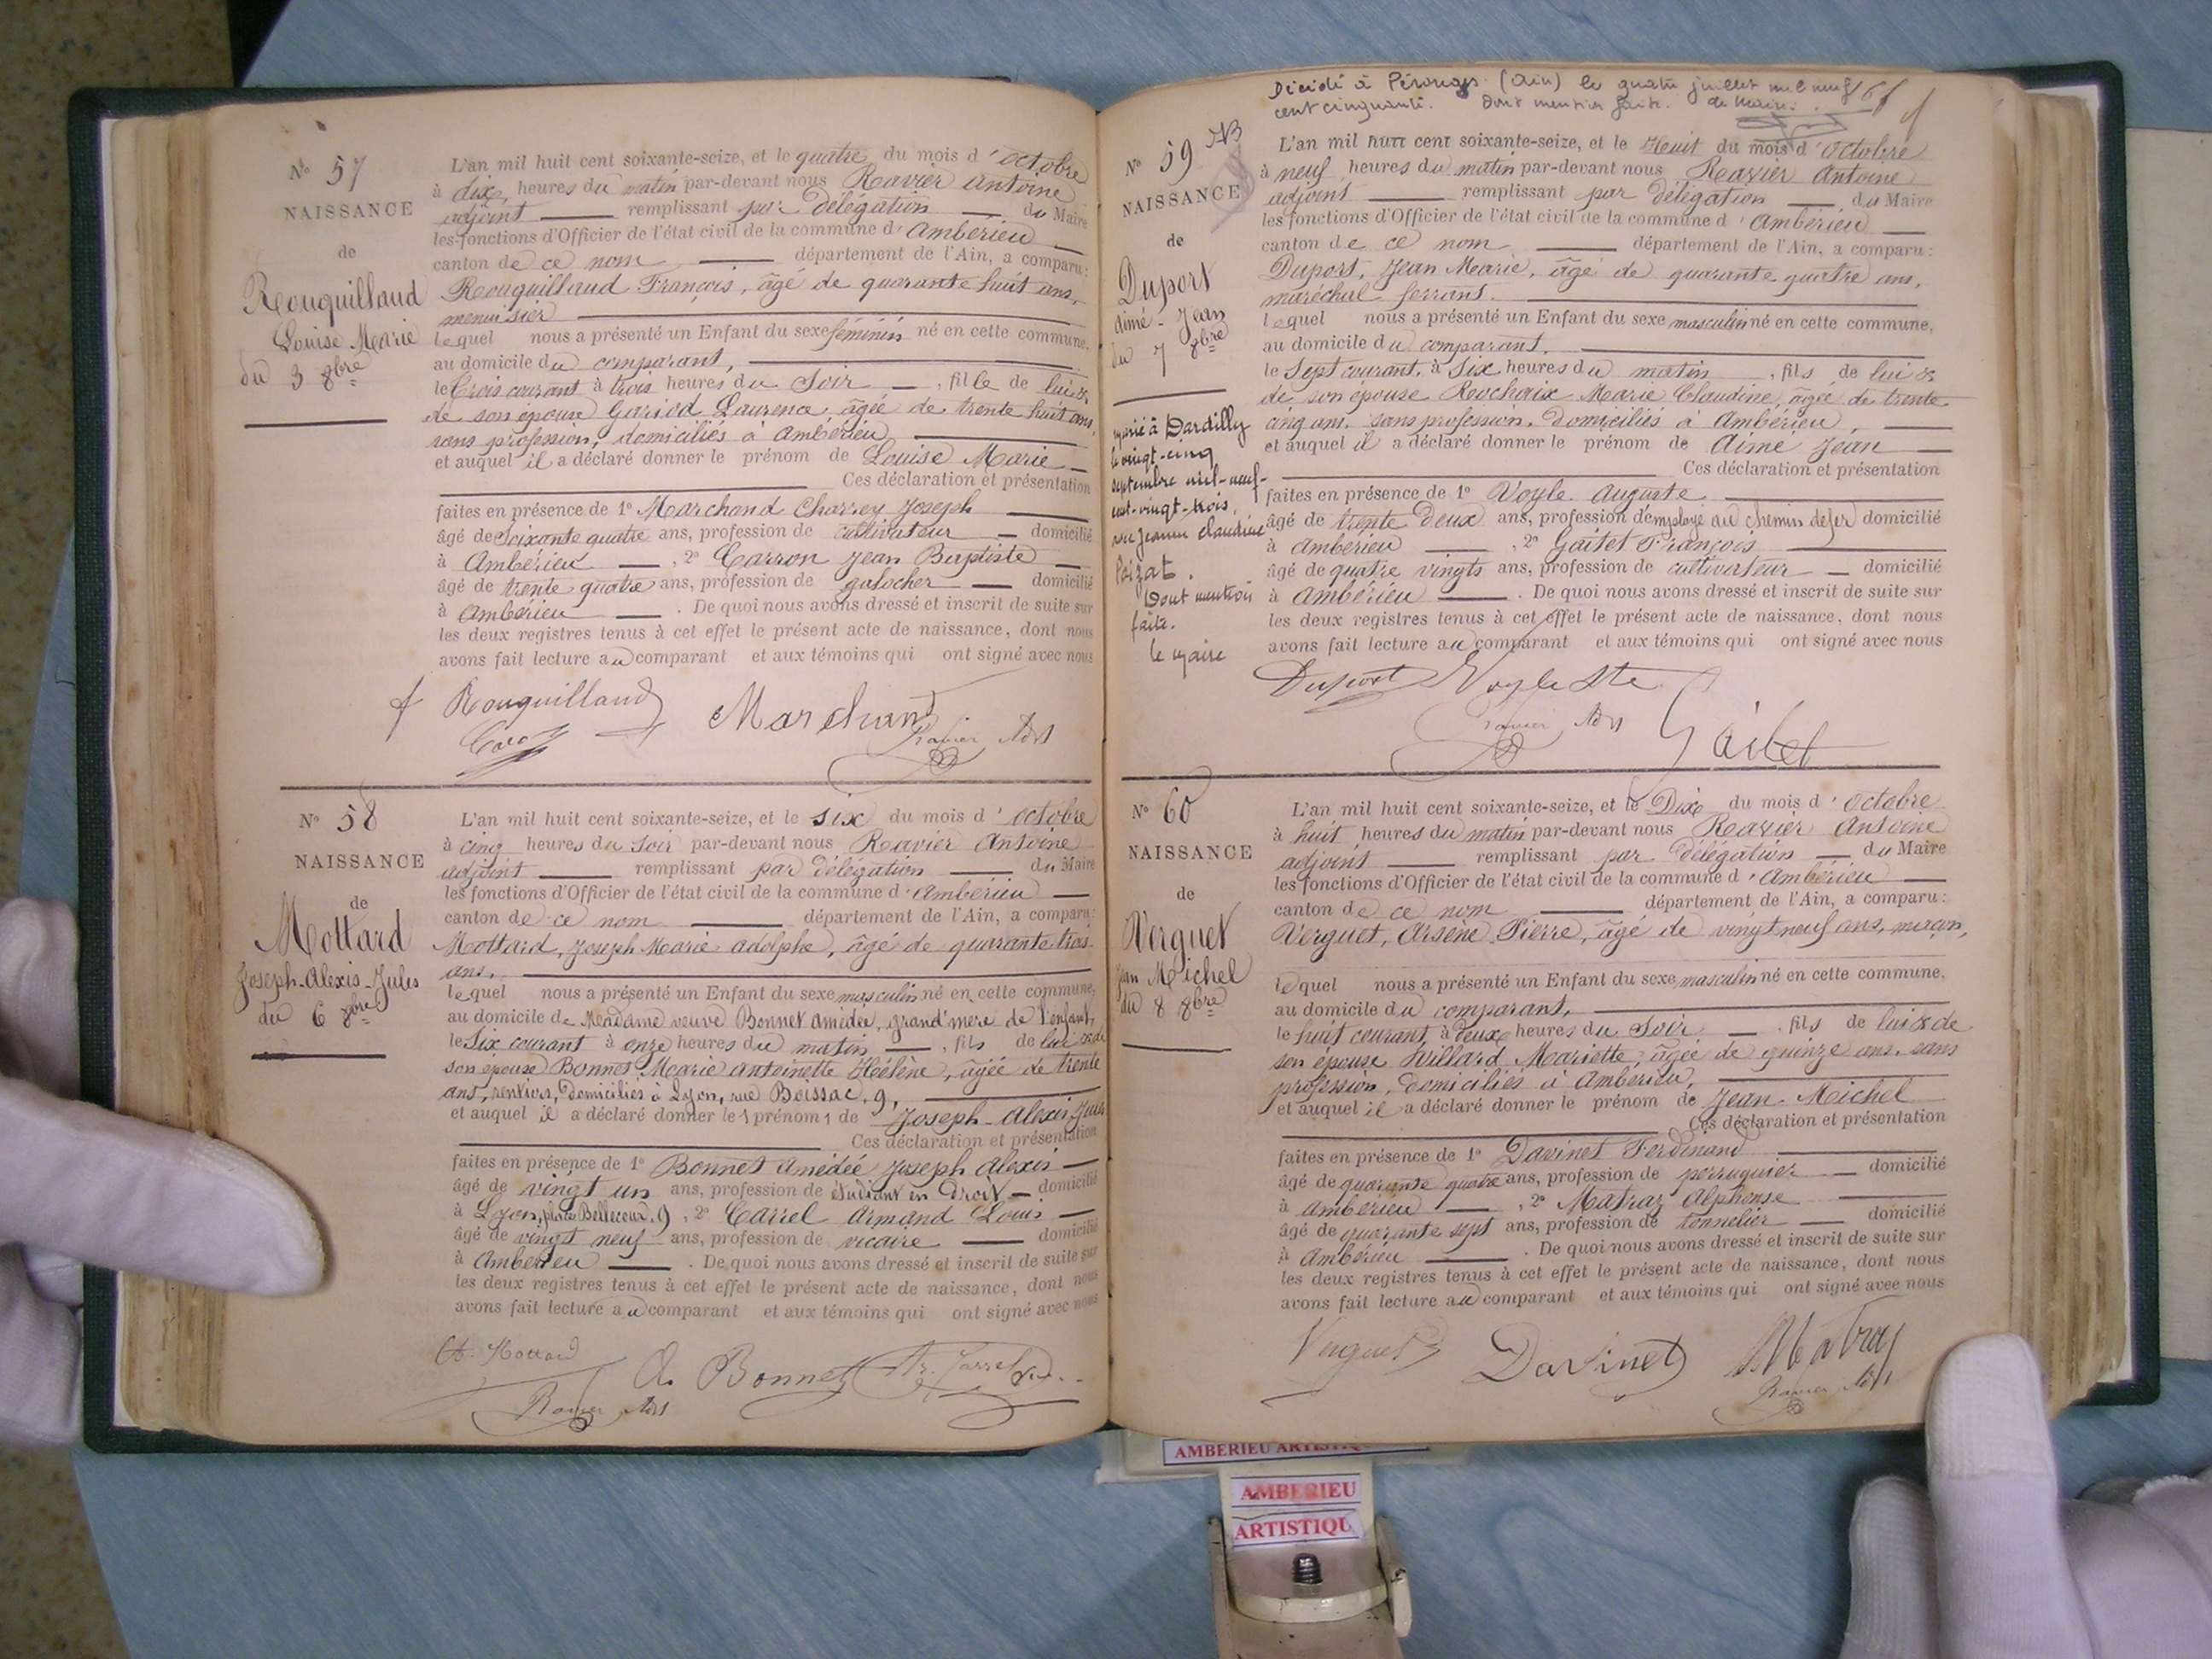 N° 57
NAISSANCE
de
Rouquillaud
Louise Marie
du 3 8bre
L'an mil huit cent soixante-seize, et le quatre du mois d'octobre
à dix heures du matin par-devant nous Ravier Antoine
adjoint remplissant par délégation du Maire
les fonctions d'Officier de l'état civil de la commune d'Ambérieu
canton de ce nom département de l'Ain, a comparu:
Rouquillaud François, âgé de quarante huit ans,
menuisier
lequel nous a présenté un Enfant du sexe féminin né en cette commune,
au domicile du comparant,
le trois courant à trois heures du soir, fille de lui &
de son épouse Gariod Laurence, âgée de trente huit ans,
sans profession, domiciliés à Ambérieu
et auquel il a déclaré donner le prénom de Louise Marie
Ces déclaration et présentation
faites en présence de 1° Marchand Charvey Joseph
âgé de Soixante quatre ans, profession de cultivateur domicilié
à Ambérieu, 2° Carron Jean Baptiste
âgé de trente quatre ans, profession de galocher domicilié
à Ambérieu. De quoi nous avons dressé et inscrit de suite sur
les deux registres tenus à cet effet le présent acte de naissance, dont nous
avons fait lecture au comparant et aux témoins qui ont signé avec nous
Rouquillaud Marchand
Ravier Adj
N° 58
NAISSANCE
de
Mottard
Joseph-Alexis-Jules
du 6 8bre
L'an mil huit cent soixante-seize, et le six du mois d'octobre
à cinq heures du soir par-devant nous Ravier Antoine
adjoint remplissant par délégation du Maire
les fonctions d'Officier de l'état civil de la commune d'Ambérieu
canton de ce nom département de l'Ain, a comparu:
Mottard, Joseph Marie Adolphe, âgé de quarante trois
ans,
lequel nous a présenté un Enfant du sexe masculin né en cette commune,
au domicile de Madame veuve Bonnet Amédée, grand'mère de l'enfant,
le Six courant à onze heures du matin, fils de lui & de
son épouse Bonnet Marie Antoinette Hélène, âgée de trente
ans, rentiers, domiciliés à Lyon, rue Boissac, 9,
et auquel il a déclaré donner les prénoms de Joseph-Alexis Jules
Ces déclaration et présentation
faites en présence de 1° Bonnet Amédée Joseph Alexis
âgé de vingt un ans, profession de étudiant en Droit domicilié
à Lyon, place Bellecour, 9, 2° Carrel Armand Louis
âgé de vingt neuf ans, profession de vicaire domicilié
à Ambérieu. De quoi nous avons dressé et inscrit de suite sur
les deux registres tenus à cet effet le présent acte de naissance, dont nous
avons fait lecture au comparant et aux témoins qui ont signé avec nous
Mottard A. Bonnet
Ravier Adj
Décédé à Pérouges (Ain) le quatre juillet mil neuf
cent cinquante. Dont mention faite. Le Maire.
N° 59
NAISSANCE
de
Duport
Aimé-Jean
du 7 8bre
marié à Dardilly
le vingt-cinq
septembre mil-neuf-
cent-vingt-trois,
avec Jeanne Claudine
Poizat.
Dont mention
faite.
le maire
L'an mil huit cent soixante-seize, et le Huit du mois d'octobre
à neuf heures du matin par-devant nous Ravier Antoine
adjoint remplissant par délégation du Maire
les fonctions d'Officier de l'état civil de la commune d'Ambérieu
canton de ce nom département de l'Ain, a comparu:
Duport, Jean Marie, âgé de quarante quatre ans,
maréchal ferrant.
lequel nous a présenté un Enfant du sexe masculin né en cette commune,
au domicile du comparant,
le Sept courant, à Six heures du matin, fils de lui &
de son épouse Rochaix Marie Claudine, âgée de trente
cinq ans, sans profession, domiciliés à Ambérieu,
et auquel il a déclaré donner le prénom de Aimé Jean
Ces déclaration et présentation
faites en présence de 1° Voyle Auguste
âgé de trente deux ans, profession d'employé au chemin de fer domicilié
à Ambérieu, 2° Gaitet François
âgé de quatre vingts ans, profession de cultivateur domicilié
à Ambérieu. De quoi nous avons dressé et inscrit de suite sur
les deux registres tenus à cet effet le présent acte de naissance, dont nous
avons fait lecture au comparant et aux témoins qui ont signé avec nous
Duport
Ravier Adj Gaitet
N° 60
NAISSANCE
de
Verguet
Jean Michel
du 8 8bre
L'an mil huit cent soixante-seize, et le Dix du mois d'octobre
à huit heures du matin par-devant nous Ravier Antoine
adjoint remplissant par délégation du Maire
les fonctions d'Officier de l'état civil de la commune d'Ambérieu
canton de ce nom département de l'Ain, a comparu:
Verguet, Arsène Pierre, âgé de vingt neuf ans, maçon,
lequel nous a présenté un Enfant du sexe masculin né en cette commune,
au domicile du comparant,
le huit courant, à deux heures du Soir, fils de lui & de
son épouse Villard Mariette, âgée de quinze ans, sans
profession, domiciliés à Ambérieu,
et auquel il a déclaré donner le prénom de Jean-Michel
Ces déclaration et présentation
faites en présence de 1° Davinet Ferdinand
âgé de quarante quatre ans, profession de perruquier domicilié
à Ambérieu, 2° Matraz Alphonse
âgé de quarante sept ans, profession de tonnelier domicilié
à Ambérieu. De quoi nous avons dressé et inscrit de suite sur
les deux registres tenus à cet effet le présent acte de naissance, dont nous
avons fait lecture au comparant et aux témoins qui ont signé avec nous
Verguet Davinet Matray
Ravier Adj
AMBERIEU
AMBERIEU
ARTISTIQU